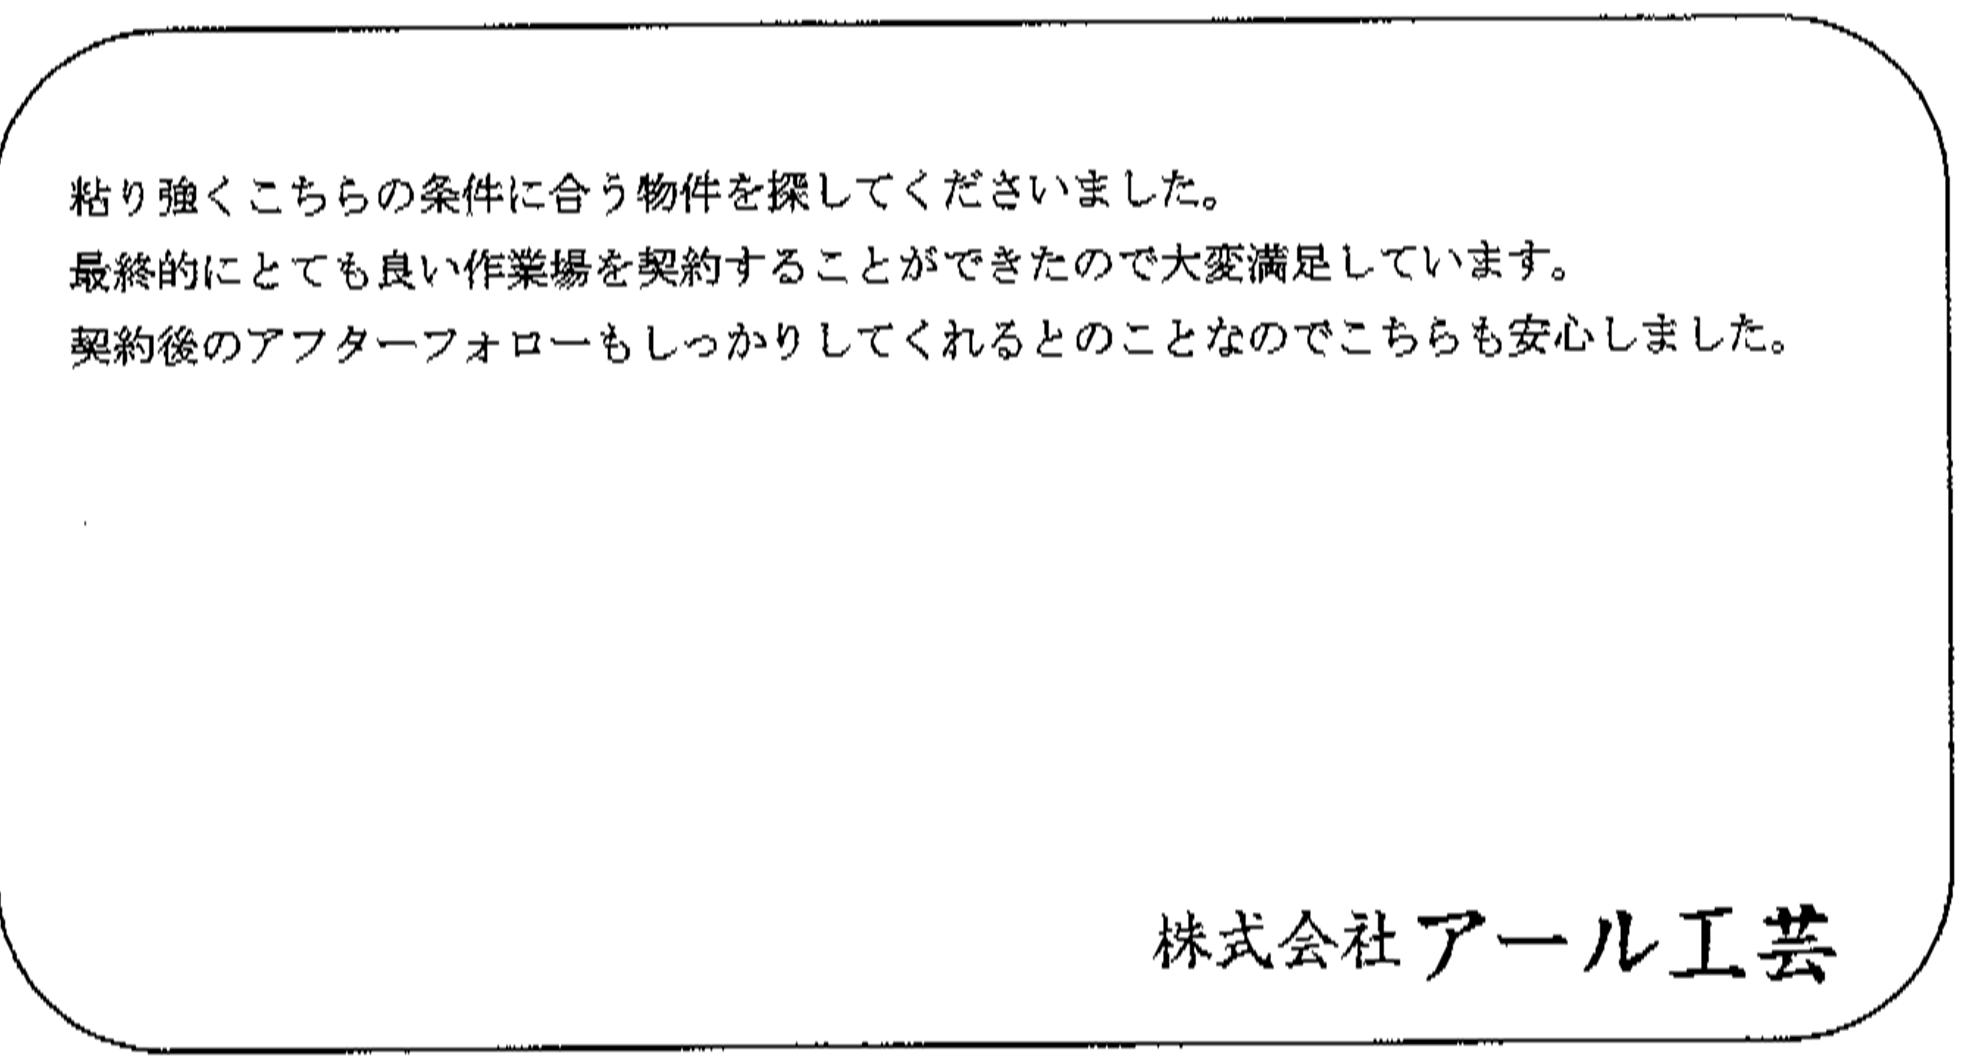 粘り強くこちらの条件に合う物件を探してくださいました。
最終的にとても良い作業場を契約することができたので大変満足しています。
契約後のアフターフォローもしっかりしてくれるとのことなのでこちらも安心しました。
株式会社アール工芸